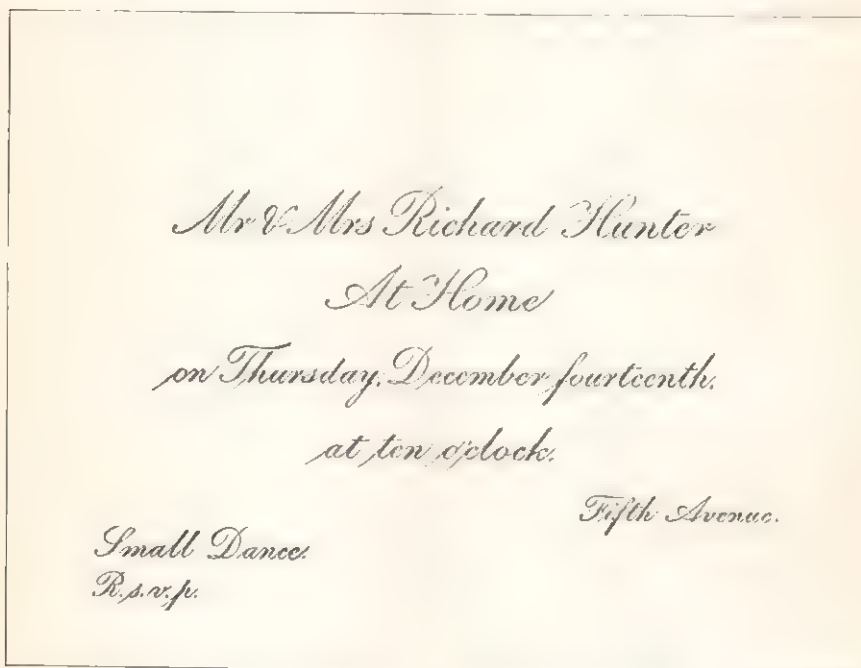 Mr & Mrs Richard Hunter
At Home
on Thursday, December fourteenth.
at ten o'clock.
Fifth Avenue.
Small Dance.
R.s.v.p.